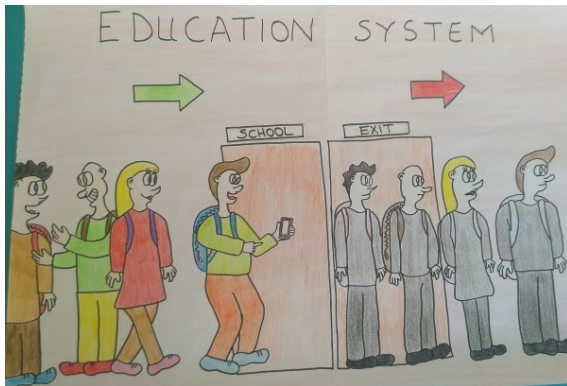 EDUCATION SYSTEM
SCHOOL
EXIT